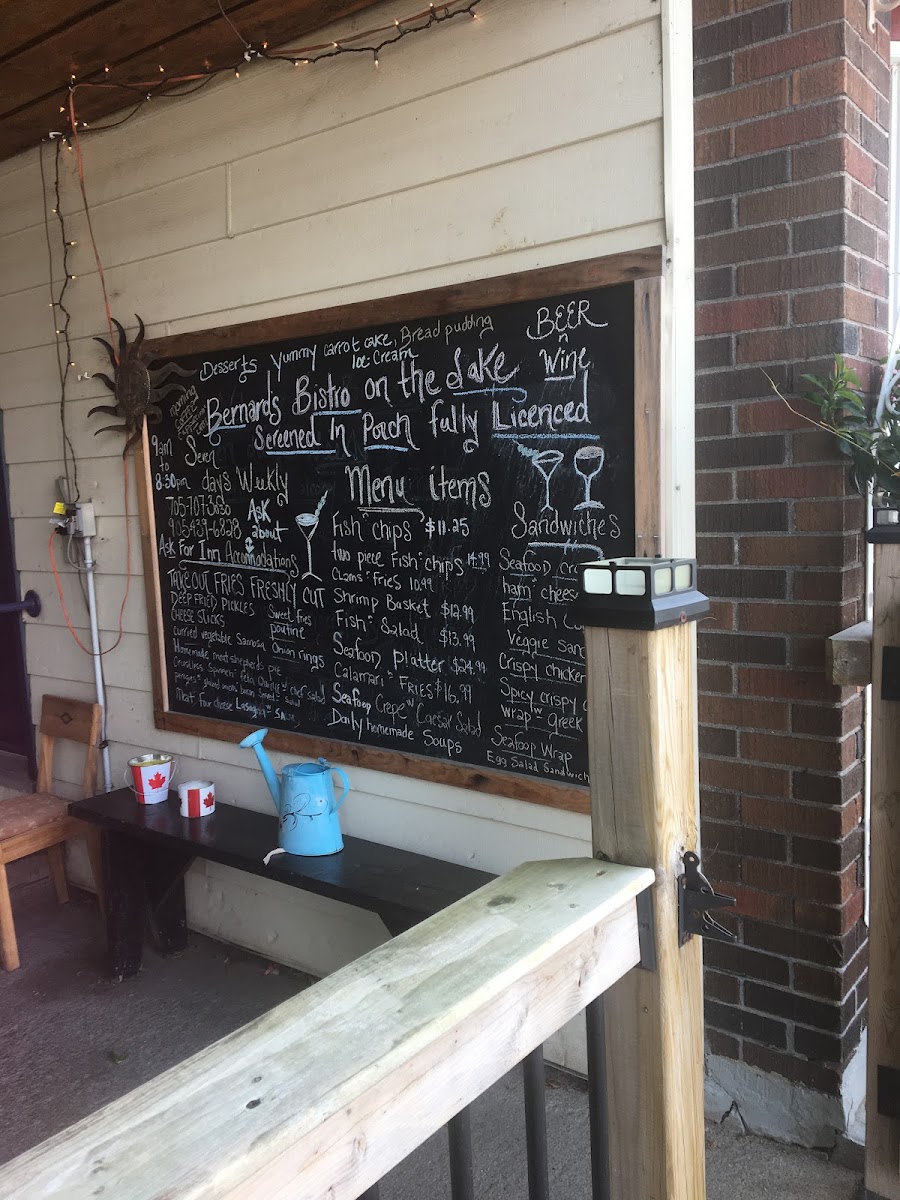 Desserts Yummy carrot cake, Bread pudding
Ice Cream
BEER
n
Wine
Bernards Bistro on the Lake
Screened In Porch fully Licenced
morning
coffee
9am
to
8:30pm
Seven
days Weekly
705-707-3636
905-439-6828
Ask
about
Ask For Inn Accomodations
TAKE OUT FRIES FRESHLY CUT
DEEP FRIED PICKLES
CHEESE STICKS
Sweet fries
poutine
Curried vegetable Samosa Onion rings
Homemade meat shepherds pie
Crustless Spinach feta Quiche w chef salad
Meat four cheese Lasagna
Menu items
Fish n chips $11.25
two piece Fish n chips 14.99
Clams n Fries 10.99
Shrimp Basket $12.99
Fish n Salad $13.99
Seafood platter $24.99
Calamari n Fries $16.99
Seafood Crepe w Caesar Salad
Daily homemade Soups
Sandwiches
Seafood
ham n chees
English
Veggie san
Crispy chicken
Spicy crispy
wrap w Greek
Seafood Wrap
Egg Salad Sandwich